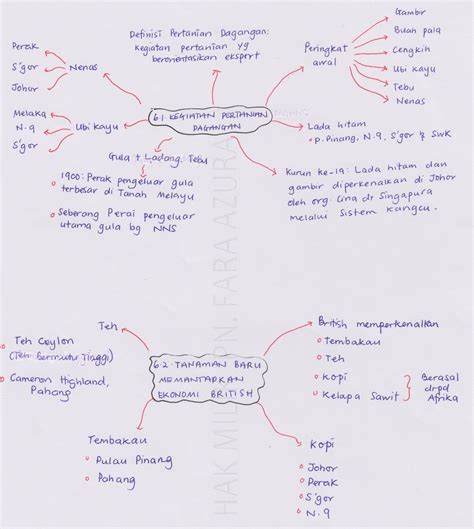 Definisi Pertanian Dagangan:
Kegiatan pertanian yg
berorientasikan eksport
Perak
S'gor
Johor
Nenas
Peringkat
awal
Gambir
Buah pala
Cengkih
Ubi kayu
Tebu
Nenas
6.1 KEGIATAN PERTANIAN
DAGANGAN
Melaka
N.9
S'gor
Ubi kayu
Lada hitam
P. Pinang, N.9, S'gor & SWK
Gula + Ladang Tebu
1900: Perak pengeluar gula
terbesar di Tanah Melayu
Seberang Perai pengeluar
utama gula bg NNS
Kurun ke-19: Lada hitam dan
gambir diperkenalkan di Johor
oleh org. Cina dr Singapura
melalui Sistem Kangcu.
HAK MILIK PN. FARA AZURA
Teh
Teh Ceylon
(Teh Bermutu Tinggi)
Cameron Highland,
Pahang
6.2 TANAMAN BARU
MEMANTAPKAN
EKONOMI BRITISH
British memperkenalkan
Tembakau
Teh
Kopi
Kelapa Sawit
Berasal
drpd
Afrika
Tembakau
Pulau Pinang
Pahang
Kopi
Johor
Perak
S'gor
N.9